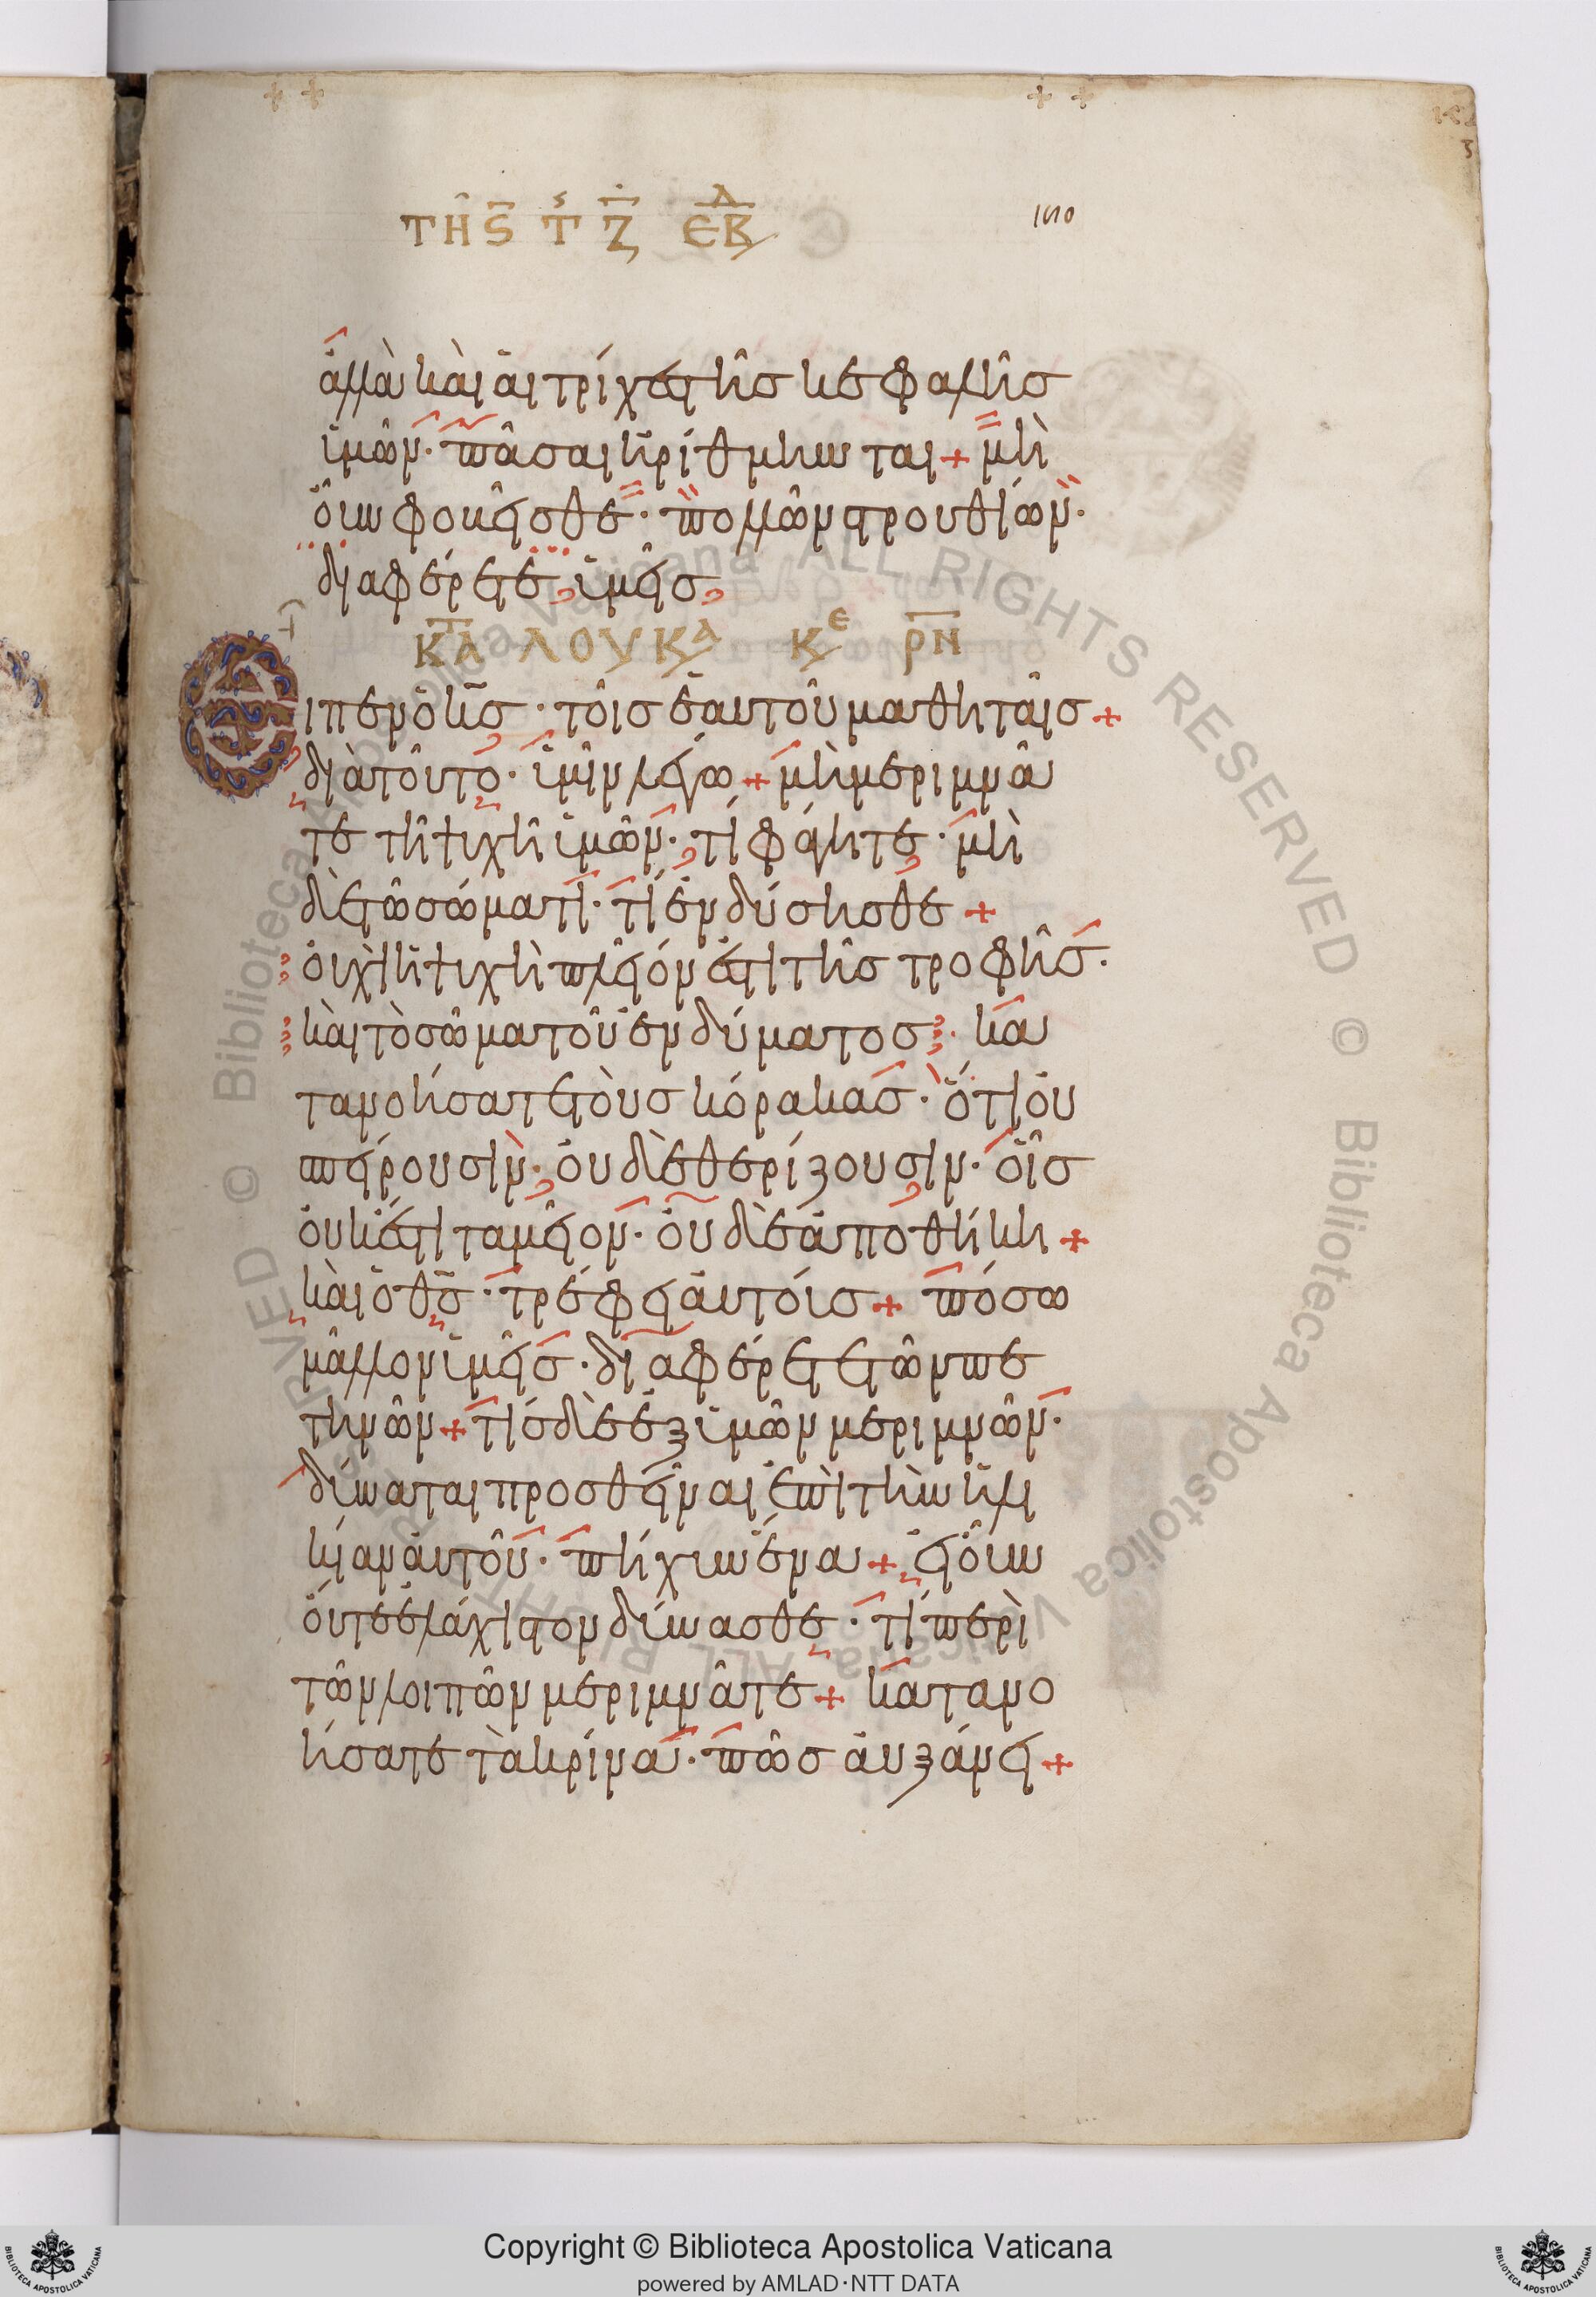 ΤΗ ϛ Τ Ζ ΕΒΔ
160
ἀλλὰ καὶ αἱ τρίχες τῆς κεφαλῆς
ὑμῶν· πᾶσαι ἠρίθμηνται + μὴ
οὖν φοβεῖσθε· πολλῶν στρουθίων·
διαφέρετε ὑμεῖς
ΚΑΤΑ ΛΟΥΚΑ ΚΕ ΡΝ
Εἶπεν ὁ κς· τοῖς ἑαυτοῦ μαθηταῖς +
διὰ τοῦτο· ὑμῖν λέγω + μὴ μεριμνᾶ
τε τῆ ψυχῆ ὑμῶν· τί φάγητε· μὴ
δὲ τῶ σώματι· τί ἐνδύσησθε +
οὐχὶ ἡ ψυχὴ πλεῖόν ἐστι τῆς τροφῆς·
καὶ τὸ σῶμα τοῦ ἐνδύματος· κα
τανοήσατε τοὺς κόρακας· ὅτι οὐ
σπείρουσιν· οὐδὲ θερίζουσιν· οἷς
οὐκ ἔστι ταμεῖον· οὐδὲ ἀποθήκη +
καὶ ὁ θς· τρέφει αὐτούς + πόσω
μᾶλλον ὑμεῖς· διαφέρετε τῶν πε
τηνῶν + τίς δὲ ἐξ ὑμῶν μεριμνῶν·
δύναται προσθεῖναι ἐπὶ τὴν ἡλι
κίαν αὐτοῦ· πήχυν ἕνα + εἰ οὖν
οὔτε ἐλάχιστον δύνασθε· τί περὶ
τῶν λοιπῶν μεριμνᾶτε + κατανο
ήσατε τὰ κρίνα· πῶς αὐξάνει +
Copyright © Biblioteca Apostolica Vaticana
powered by AMLAD·NTT DATA